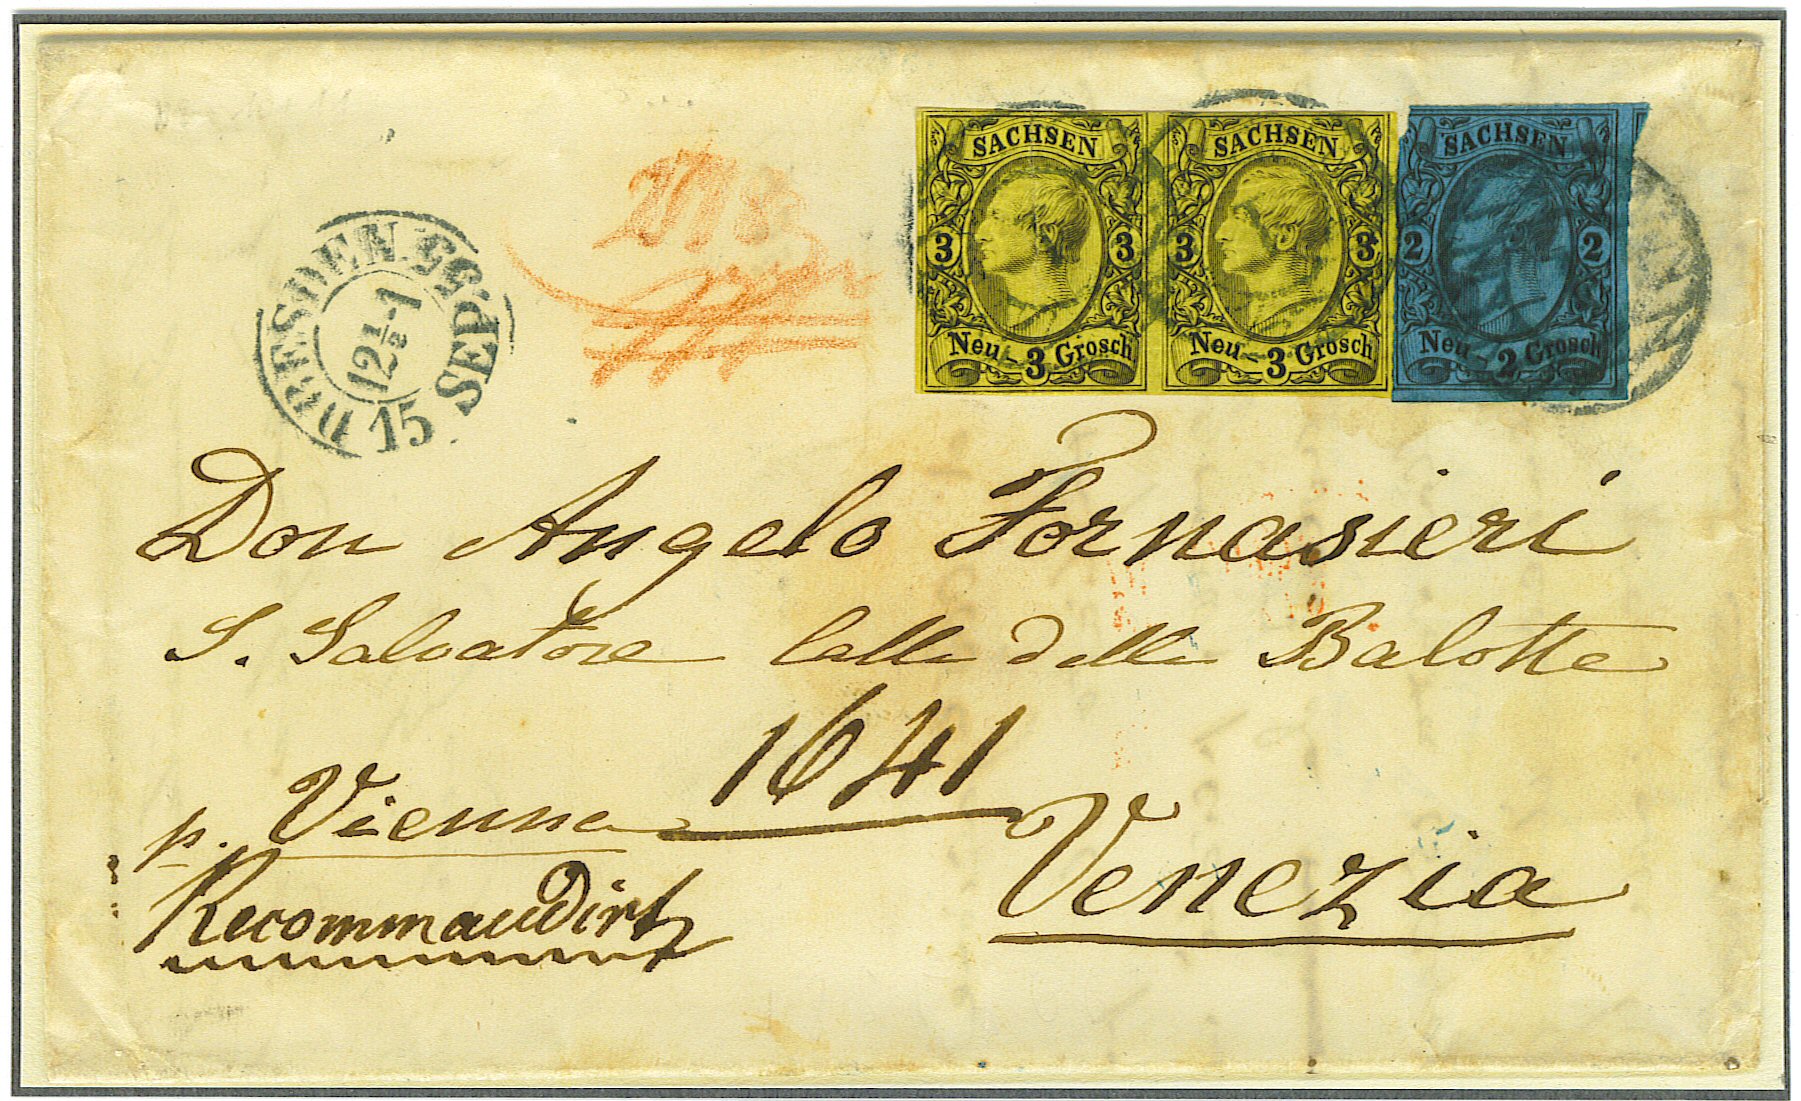 SACHSEN SACHSEN SACHSEN
3 3 3 3 2 2
Neu - 3 Grosch Neu - 3 Grosch Neu - 2 Grosch
DRESDEN 15 SEP. 55
12½-1
Don Angelo Fornasieri
S. Salvatore Calle delle Balotte
1641
p. Vienna
Venezia
Recommandirt